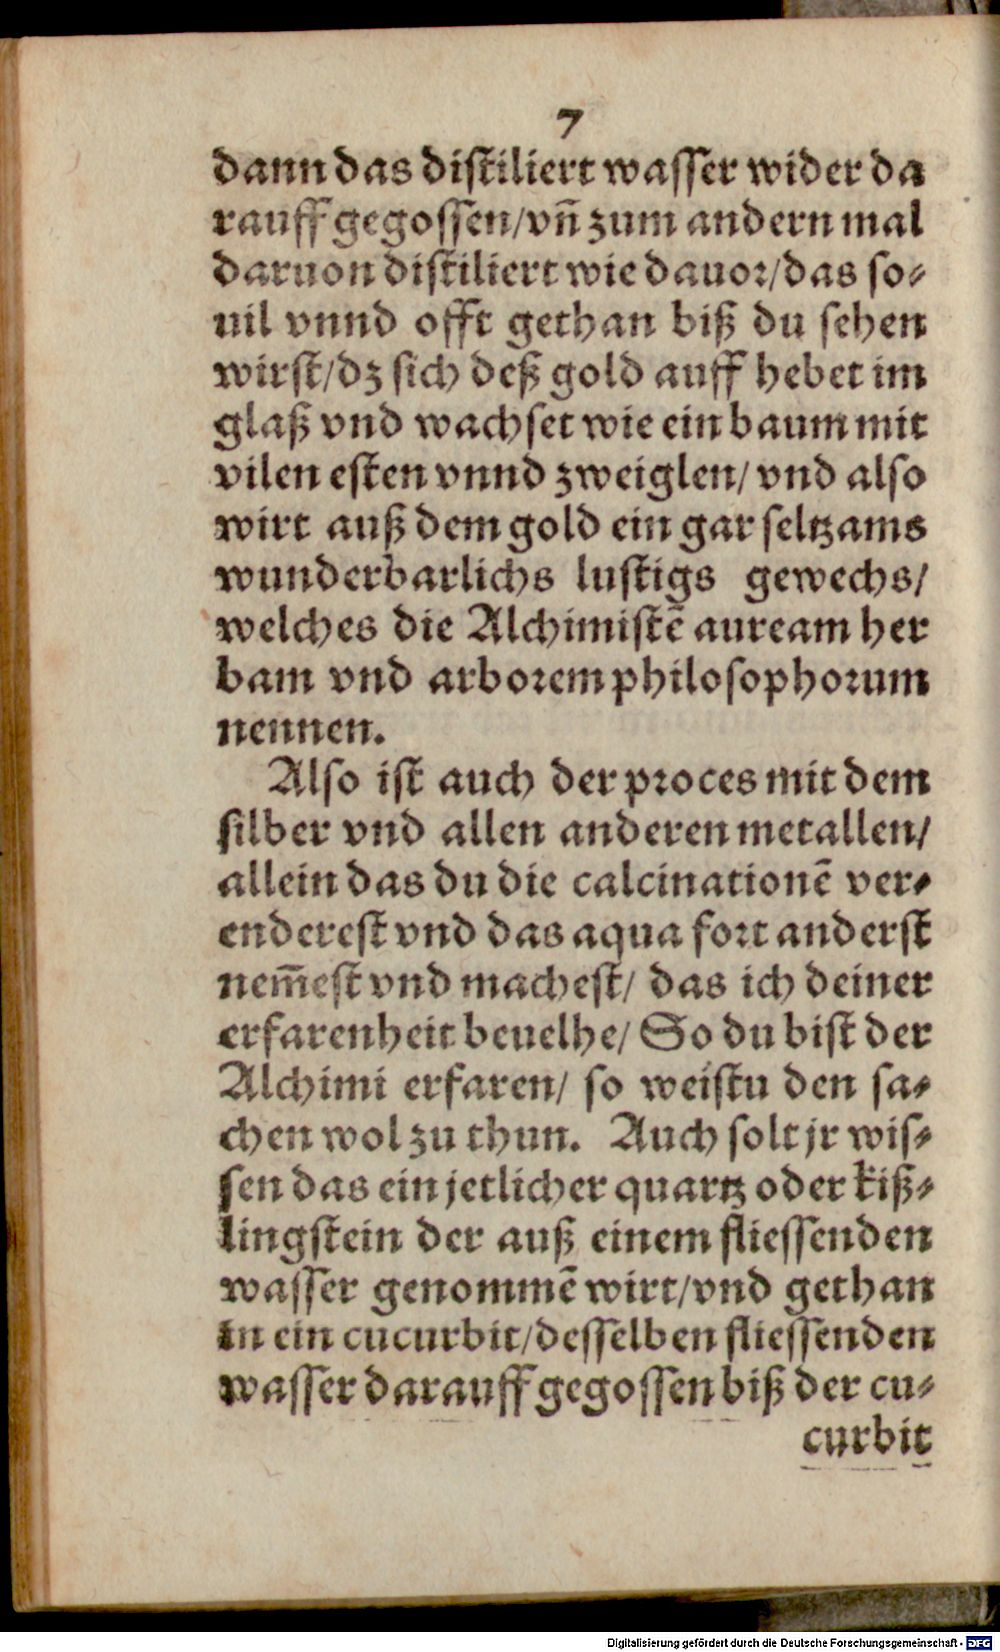 7
dann das distiliert wasser wider da
rauff gegossen/vñ zum andern mal
daruon distiliert wie dauor/das so⸗
uil vnnd offt gethan biß du sehen
wirst/dz sich deß gold auff hebet im
glaß vnd wachset wie ein baum mit
vilen esten vnnd zweiglen/ vnd also
wirt auß dem gold ein gar seltzams
wunderbarlichs lustigs gewechs/
welches die Alchimistẽ auream her
bam vnd arborem philosophorum
nennen.
Also ist auch der proces mit dem
silber vnd allen anderen metallen/
allein das du die calcinationẽ ver⸗
enderest vnd das aqua fort anderst
nem̃est vnd machest/ das ich deiner
erfarenheit beuelhe/ So du bist der
Alchimi erfaren/ so weistu den sa⸗
chen wol zu thun. Auch solt jr wis⸗
sen das ein jetlicher quartz oder kiß⸗
lingstein der auß einem fliessenden
wasser genommẽ wirt/vnd gethan
in ein cucurbit/desselben fliessenden
wasser darauff gegossen biß der cu⸗
curbit
Digitalisierung gefördert durch die Deutsche Forschungsgemeinschaft - DFG